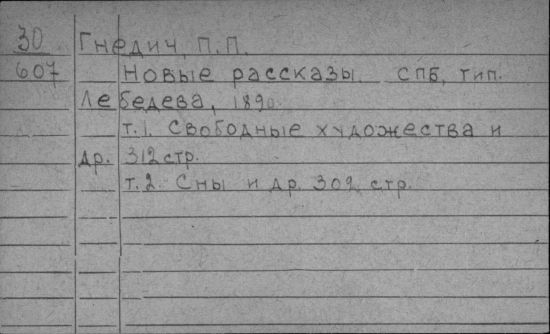 30 Гнедич, П.П.
607 Новые рассказы. СПБ, тип.
Лебедева, 1890.
т.1. Свободные художества и
др. 312 стр.
т.2. Сны и др. 302 стр.